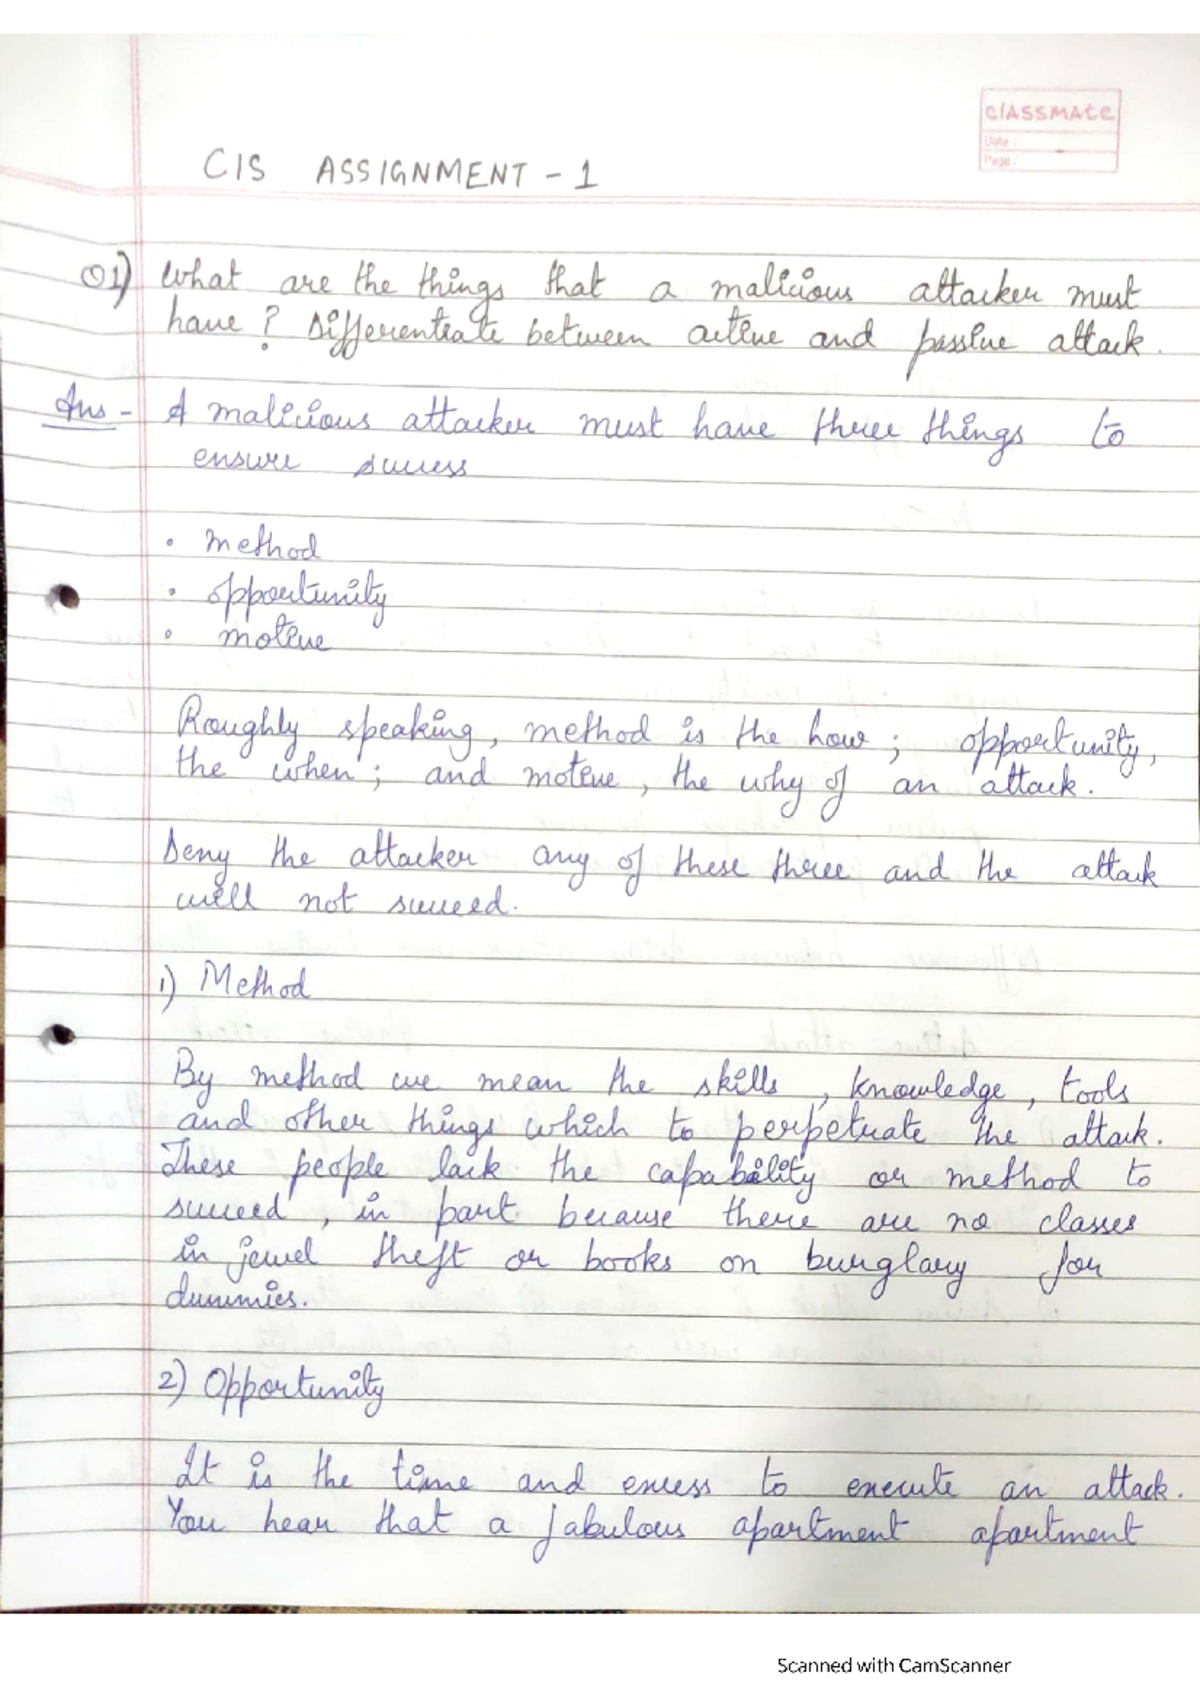 classmate
Date :
Page :
CIS ASSIGNMENT - 1
Q1) What are the things that a malicious attacker must
have ? Differentiate between active and passive attack.
Ans - A malicious attacker must have three things to
ensure success
• method
• opportunity
• motive
Roughly speaking, method is the how ; opportunity,
the when ; and motive, the why of an attack.
Deny the attacker any of these three and the attack
will not succeed.
1) Method
By method we mean the skills , knowledge , tools
and other things which to perpetuate the attack.
These people lack the capability or method to
succeed , in part because there are no classes
in jewel theft or books on burglary for
dummies.
2) Opportunity
It is the time and excess to execute an attack.
You hear that a fabulous apartment apartment
Scanned with CamScanner